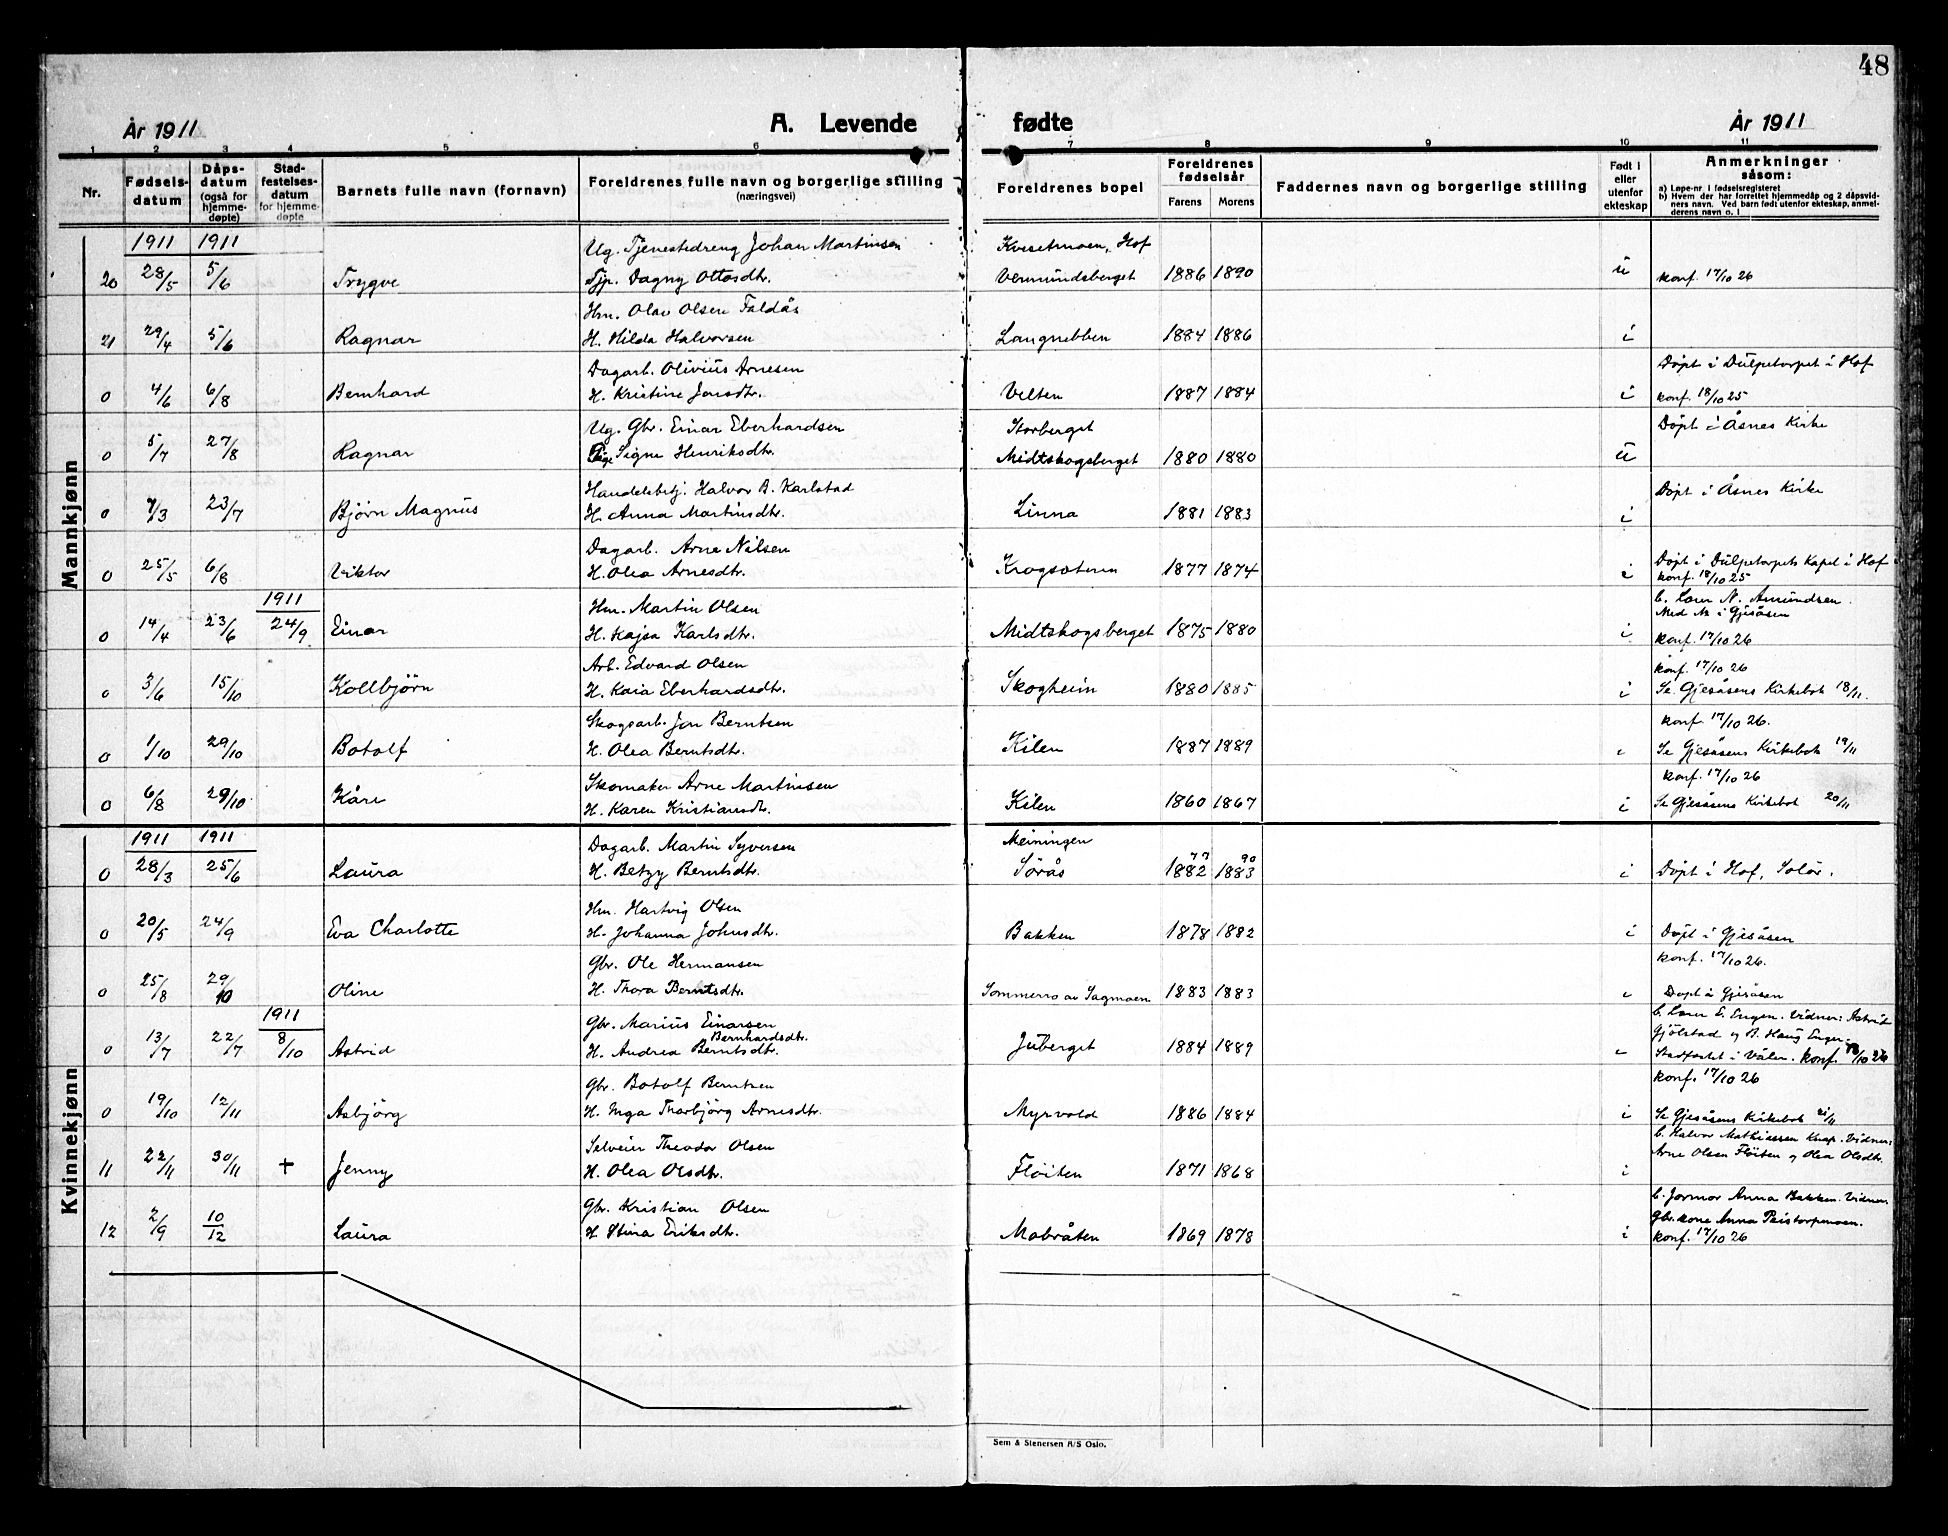 48
År 1911 A. Levende fødte År 1911
1 2 3 4 5 6 7 8 9 10 11
Nr. Fødselsdatum Dåpsdatum (også for hjemmedøpte) Stadfestelsesdatum for hjemmedøpte Barnets fulle navn (fornavn) Foreldrenes fulle navn og borgerlige stilling (næringsvei) Foreldrenes bopel Foreldrenes fødselsår Farens Morens Faddernes navn og borgerlige stilling Født i eller utenfor ekteskap Anmerkninger såsom:
a) Løpe-nr i fødselsregisteret
b) Hvem der har forrettet hjemmedåp og 2 dåpsvidners navn. Ved barn født utenfor ekteskap, anmelderens navn o. l
Mannkjønn
1911 1911 Ug. Tjenestedreng Johan Martinsen Kvesetmoen, Hof
20 28/5 5/6 Trygve Tjp. Dagny Ottosdtr. Vermundsberget 1886 1890 u konf. 17/10 26
Hm. Olav Olsen Faldås
21 29/4 5/6 Ragnar H. Hilda Halvorsen Langnebben 1884 1886 i
Dagarb. Olivius Arnesen Døpt i Dulpetorpet i Hof
0 4/6 6/8 Bernhard H. Kristine Jonsdtr. Velten 1887 1884 i konf. 18/10 25
Ug. Gbr. Einar Eberhardsen Storberget Døpt i Åsnes Kirke
0 5/7 27/8 Ragnar Pige Signe Henriksdtr. Midtskogsberget 1880 1880 u
Handelsbetj. Halvor B. Karlstad Døpt i Åsnes Kirke
0 7/3 23/7 Bjørn Magnus H. Anna Martinsdtr. Linna 1881 1883 i
Dagarb. Arne Nilsen Døpt i Dulpetorpets Kapel i Hof
0 25/5 6/8 Viktor H. Olea Arnesdtr. 1877 1874 i konf. 18/10 25
1911 Hm. Martin Olsen b. Lærer N. Amundsen.
Med N. i Gjesåsen
0 14/4 23/6 24/9 Einar H. Kajsa Karlsdtr. Midtskogsberget 1875 1880 i konf. 17/10 26
Arb. Edvard Olsen konf. 17/10 26
0 3/6 15/10 Kollbjørn H. Kaia Eberhardsdtr. Skogheim 1880 1885 i Se Gjesåsens Kirkebok 18/11.
Skogsarb. Jon Berntsen konf. 17/10 26.
0 1/10 29/10 Botolf H. Olea Berntsdtr. Kilen 1887 1889 i Se Gjesåsens Kirkebok 19/11
Skomaker Arne Martinsen konf. 17/10 26
0 6/8 29/10 Kåre H. Karen Kristiansdtr. Kilen 1860 1867 i Se Gjesåsens Kirkebok 20/11
Kvinnekjønn
1911 1911 Dagarb. Martin Syversen Meiningen 77 90
0 28/3 25/6 Laura H. Betzy Berntsdtr. Sørås 1882 1883 i Døpt i Hof, Solør.
Hm. Hartvig Olsen
0 20/5 24/9 Eva Charlotte H. Johanna Johnsdtr. Bakken 1878 1882 i Døpt i Gjesåsen
Gbr. Ole Hermansen konf. 17/10 26.
0 25/8 29/10 Oline H. Thora Berntsdtr. Sommerro av Sagmoen 1883 1883 i Døpt i Gjesåsen
1911 Gbr. Marius Einarsen b. Lærer E. Enger. Vidner: Astrid
Bernhardsdtr. Gjölstad og B. Haug Enger.
0 13/7 22/7 8/10 Astrid H. Andrea Berntsdtr. Juberget 1884 1889 i Stadfestet i Våler. konf. 17/10 26
Gbr. Botolf Berntsen konf. 17/10 26
0 19/10 12/11 Asbjörg H. Inga Thorbjörg Arnesdtr. Myrvold 1886 1884 i Se Gjesåsens Kirkebok 21/11
Selveier Theodor Olsen b. Halvor Mathiassen Knap. Vidner:
Arne Olsen Flöiten og Olea Olsdtr.
11 22/11 30/11 + Jenny H. Olea Olsdtr. Flöiten 1871 1868 i
Gbr. Kristian Olsen b. Jormor Anna Bakken. Vidner
Gbr.kone Anna
12 2/9 10/12 Laura H Stina Eriksdtr. Mabråten 1869 1878 i konf. 17/10 26
Sem & Stenersen A/S Oslo.